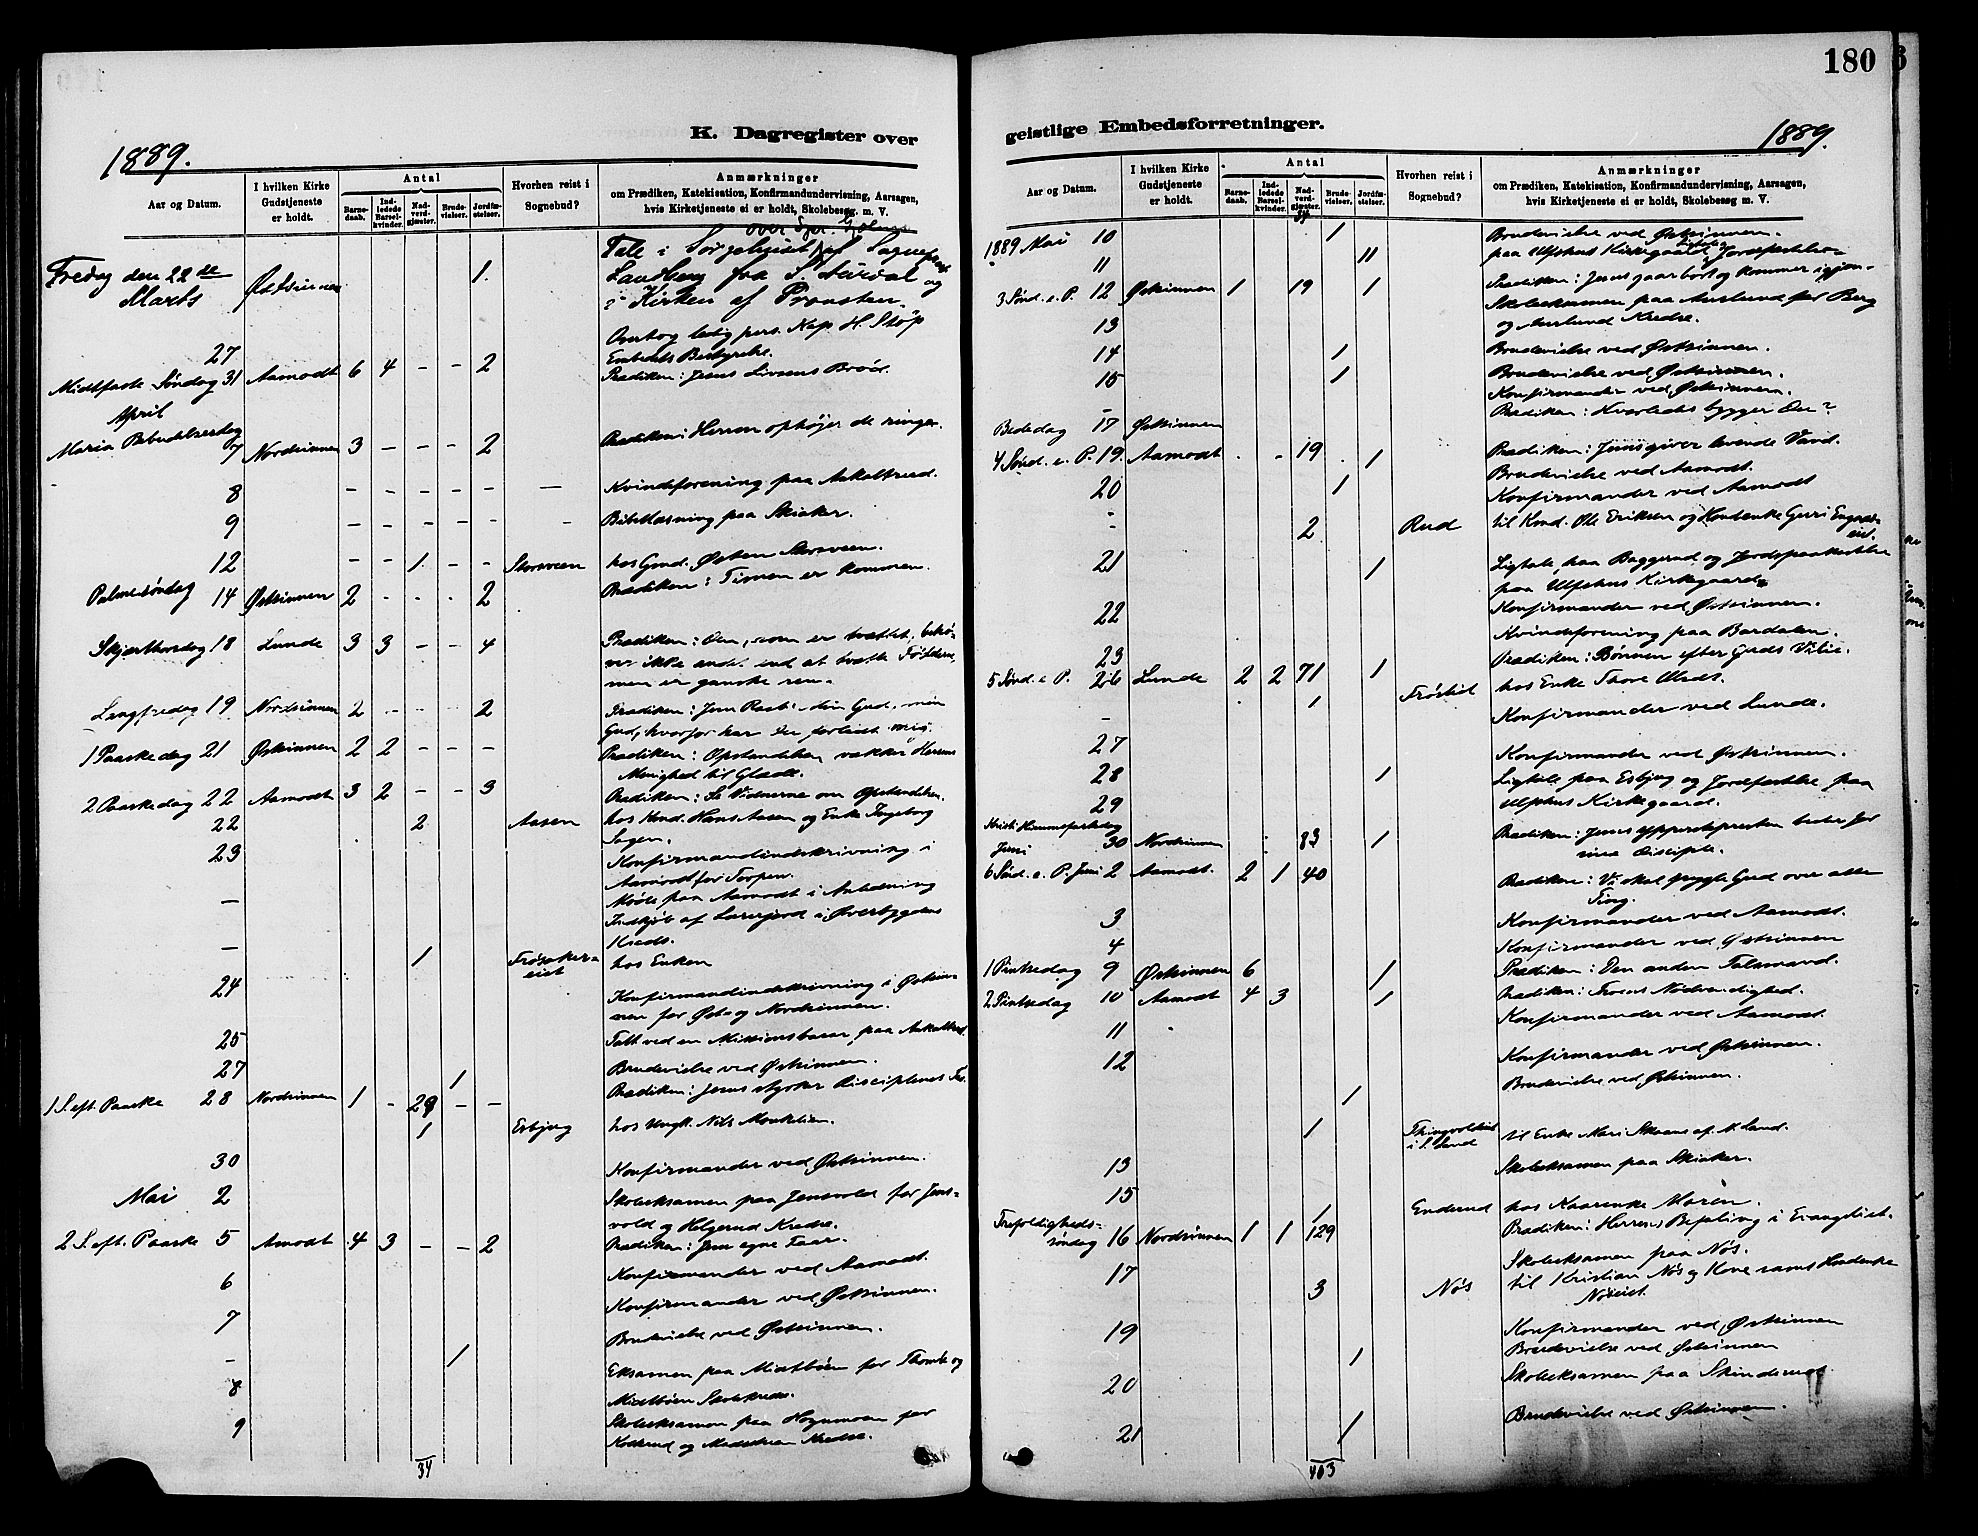 180
K. Dagregister over
geistlige Embedsforretninger.
1889.
1889.
Aar og Datum.
I hvilken Kirke Gudstjeneste er holdt.
Antal
Barnedaab.
Indledede Barselkvinder.
Nadverdgjæster.
Brudevielser.
Jordfæstelser.
Hvorhen reist i Sognebud?
Anmærkninger
om Prædiken, Katekisation, Konfirmandundervisning, Aarsagen,
hvis Kirketjeneste ei er holdt, Skolebesøg m. V.
Fredag den 22de Marts Østsinnen 1. Tale i Sørgehuset af Sogneprest
Landberg fra S. Aurdal og
i Kirken af Provsten.
27 Overtog pers. Kap. H. Støp
Embedets Bestyrelse.
Midtfaste Søndag 31 Aamodt 6 4 - - 2 Prædiken: Jesus Livsens Brød.
April
Maria Bebudelsesdag 7 Nordsinnen 3 - - - 2 Prædiken: Herren ophøjer de ringe.
8 - - - - - - Kvindeforening paa
9 - - - - - - Bibellæsning paa Skiaker.
12 - - 1 - - Storsveen hos Gmd. Østen Storsveen.
Palmesøndag 14 Østsinnen 2 - - - 2 Prædiken: Timen er kommen.
Skjærthorsdag 18 Lunde 3 3 - - 4 Prædiken: Den, som er tvættet, behø-
ver ikke andet end at tvætte Fødderne,
men er ganske ren.
Langfredag 19 Nordsinnen 2 - - - 2 Prædiken: min Gud, min
Gud, hvorfor har du forladt mig.
1 Paaskedag 21 Østsinnen 2 2 - - - Prædiken: Opstandelsen vækker Herrens
Menighed til Glæde.
2 Paaskedag 22 Aamodt 3 2 - - 3 Prædiken: Vidnerne om Opstandelsen.
22 2 Aasen hos Hans Aasen og Enke Ingeborg
23 Konfirmandindskrivning i
Aamodt for Torpen.
- Møde paa Aamodt i Anledning
Indkjøb af Lærerjord i Øverbygdens
Kreds.
- 1 hos Enken
24 Konfirmandindskrivning i Østsin-
nen for Øst og Nordsinnen.
25 Talt ved en Missionsbasar paa
27 1 Brudevielse ved Østsinnen.
1 S. eft. Paaske 28 Nordsinnen 1 - 29 - - Prædiken: Jesus styrker Disciplenes Tro.
1 Esbjug hos Ungk. Nils
30 Konfirmander ved Østsinnen.
Mai 2 Skoleeksamen paa Jensvold for Jens-
vold og Helgerud Kredse.
2 S. eft. Paaske 5 Amodt 4 3 - - 2 Prædiken: Jesu egne Faar.
6 Konfirmander ved Aamodt.
7 Konfirmander ved Østsinnen.
- 1 Brudevielse ved Østsinnen.
8 Eksamen paa Midtbøen for Thomle og
Midtbøen Skolekreds.
9 Skoleeksamen paa Høgnmoen for
34
Aar og Datum.
I hvilken Kirke Gudstjeneste er holdt.
Antal
Barnedaab.
Indledede Barselkvinder.
Nadverdgjæster.
Brudevielser.
Jordfæstelser.
Hvorhen reist i Sognebud?
Anmærkninger
om Prædiken, Katekisation, Konfirmandundervisning, Aarsagen,
hvis Kirketjeneste ei er holdt, Skolebesøg m. V.
34
1889 Mai 10 1 Brudevielse ved Østsinnen.
11 11 paa Ulshus Kirkegaard Jordfæstelse
3 Sønd. e. P. 12 Østsinnen 1 19 1 Prædiken: Jesus gaar bort og kommer igjen.
13 Skoleeksamen paa Aurlund for Berg
og Aurlund Kredse.
14 1 Brudevielse ved Østsinnen.
15 1 Brudevielse ved Østsinnen.
Konfirmander ved Østsinnen.
Bededag 17 Østsinnen Prædiken: Hvorledes bygger Du?
4 Sønd. e. P. 19. Aamodt - - 19 - 1 Prædiken: Jesus giver levende Vand.
20 1 Brudevielse ved Aamodt.
Konfirmander ved Aamodt
- 2 Rud til Ole Eriksen og Guri
21 1 Ligtale paa Baggerud og Jordpaakastelse
paa Ulshus Kirkegaard
22 Konfirmander ved Østsinnen.
23 Kvindeforening paa Bardalen.
5 Sønd. e. P. 26 Lunde 2 2 71 1 Prædiken: Bønnen efter Guds Vilie.
1 hos Enke Thore
- Konfirmander ved Lunde.
27
28 Konfirmander ved Østsinnen.
29 1 Ligtale paa Esbjug og Jordfæstelse paa
Ulshus Kirkegaard.
Kristi Himmelfartsdag 30 Nordsinnen 83 1 Prædiken: Jesus ypperstepresten beder for
sine Disciple.
Juni
6 Sønd. e. P. Juni 2 Aamodt. 2 1 40 Prædiken: Vi skal frygte Gud over alle
Ting.
3 Konfirmander ved Aamodt.
4 Konfirmander ved Østsinnen
1 Pintsedag 9 Østsinnen 6 1 Prædiken: Den anden Talsmand.
2 Pintsedag 10 Aamodt 4 3 1 Prædiken: Troens Nødvendighed.
11 Konfirmander ved Aamodt.
12 Konfirmander ved Østsinnen.
1 Brudevielse ved Østsinnen.
1 i S. Land til Enke Mari af N. Land.
13 Skoleeksamen paa Skiaker.
15 1 Enderud hos Kaarenke Maren.
Trefoldigheds-
søndag 16 Nordsinnen 1 1 129 Prædiken: Herrens Befaling i Evangeliet.
17 Skoleeksamen paa Nøs.
3 Nøs til Kristian Nøs og Kone samt
Nøseiet.
19 Konfirmander ved Østsinnen
1 Brudevielse ved Østsinnen
20 Skoleeksamen paa
21 1 Brudevielse ved Østsinnen.
403